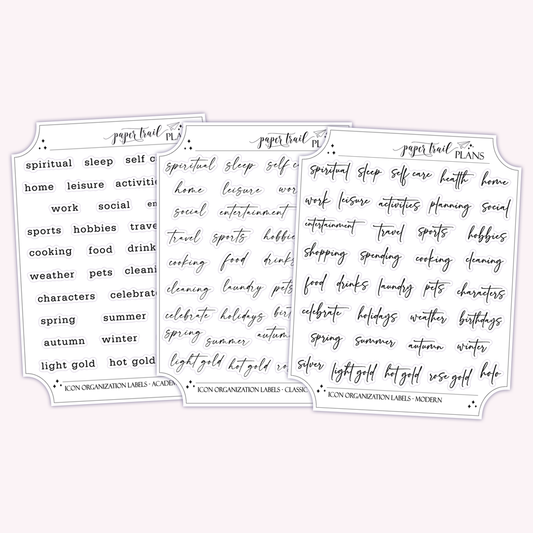 paper trail
PLA
spiritual sleep self c
home leisure activities
work social en
sports hobbies trave
cooking food drink
weather pets cleani
characters celebrat
spring summer
autumn winter
light gold hot gold
ICON ORGANIZATION LABELS • ACADEM
paper trail
PLANS
spiritual sleep self c
home leisure wor
social entertainment
travel sports hobbies
cooking food drinks
cleaning laundry pets
celebrate holidays birt
spring summer autumn
light gold hot gold ro
ICON ORGANIZATION LABELS • CLASSIC
paper trail
PLANS
spiritual sleep self care health home
work leisure activities planning social
entertainment travel sports hobbies
shopping spending cooking cleaning
food drinks laundry pets characters
celebrate holidays weather birthdays
spring summer autumn winter
silver light gold hot gold rose gold holo
ICON ORGANIZATION LABELS • MODERN